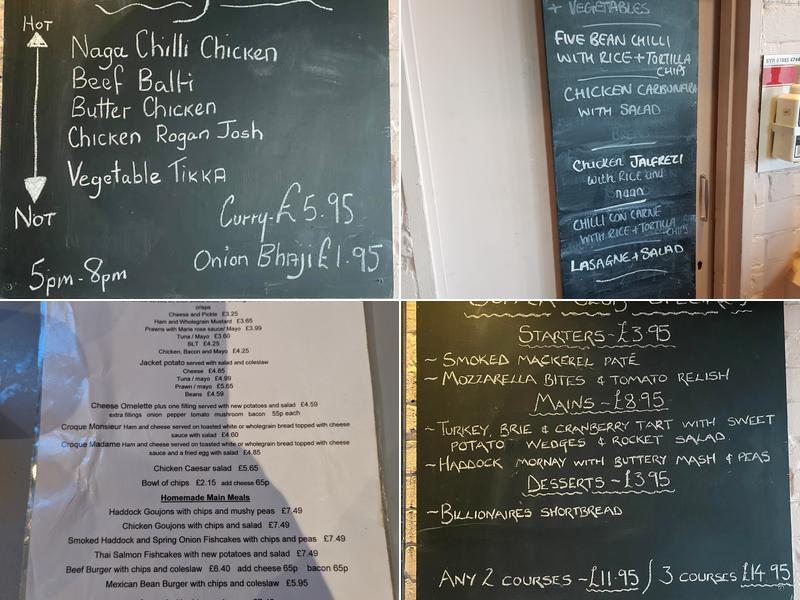 HOT
Naga Chilli Chicken
Beef Balti
Butter Chicken
Chicken Rogan Josh
Vegetable TIKKA
NOT
Curry-£5.95
Onion Bhaji £1.95
5pm-8pm
+ VEGETABLES
FIVE BEAN CHILLI
WITH RICE + TORTILLA
CHIPS
CHICKEN CARBONARA
WITH SALAD
CHICKEN JALFREZI
with RICE and
naan
CHILLI CON CARNE
WITH RICE + TORTILLA
CHIPS
LASAGNE + SALAD
crisps
Cheese and Pickle £3.25
Ham and Wholegrain Mustard £3.65
Prawns with Marie rose sauce/ Mayo £3.99
Tuna / Mayo £3.60
BLT £4.25
Chicken, Bacon and Mayo £4.25
Jacket potato served with salad and coleslaw
Cheese £4.85
Tuna / mayo £4.99
Prawn / mayo £5.65
Beans £4.59
Cheese Omelette plus one filling served with new potatoes and salad £4.59
extra fillings onion pepper tomato mushroom bacon 55p each
Croque Monsieur Ham and cheese served on toasted white or wholegrain bread topped with cheese
sauce with salad £4.60
Croque Madame Ham and cheese served on toasted white or wholegrain bread topped with cheese
sauce and a fried egg with salad £4.85
Chicken Caesar salad £5.65
Bowl of chips £2.15 add cheese 65p
Homemade Main Meals
Haddock Goujons with chips and mushy peas £7.49
Chicken Goujons with chips and salad £7.49
Smoked Haddock and Spring Onion Fishcakes with chips and peas £7.49
Thai Salmon Fishcakes with new potatoes and salad £7.49
Beef Burger with chips and coleslaw £6.40 add cheese 65p bacon 65p
Mexican Bean Burger with chips and coleslaw £5.95
STARTERS - £3.95
~ SMOKED MACKEREL PATÉ
~ MOZZARELLA BITES & TOMATO RELISH
MAINS - £8.95
~ TURKEY, BRIE & CRANBERRY TART WITH SWEET
POTATO WEDGES & ROCKET SALAD.
~ HADDOCK MORNAY WITH BUTTERY MASH & PEAS
DESSERTS - £3.95
~ BILLIONAIRES SHORTBREAD
ANY 2 COURSES - £11.95 / 3 COURSES £14.95